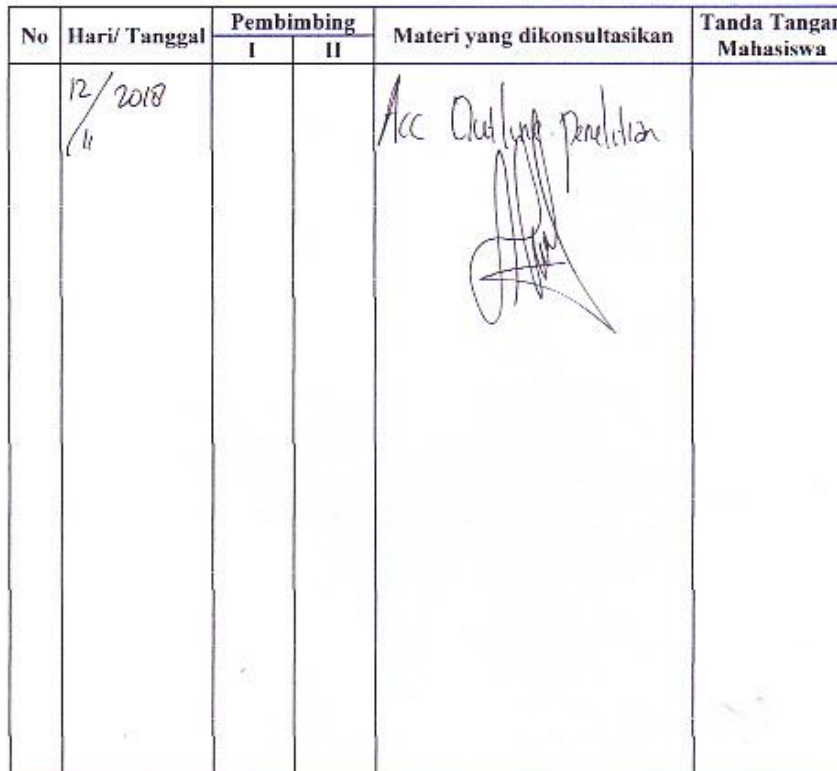 No Hari/ Tanggal Pembimbing Materi yang dikonsultasikan Tanda Tangan
I II Mahasiswa
12/ 2018 Acc Outline penelitian
/11